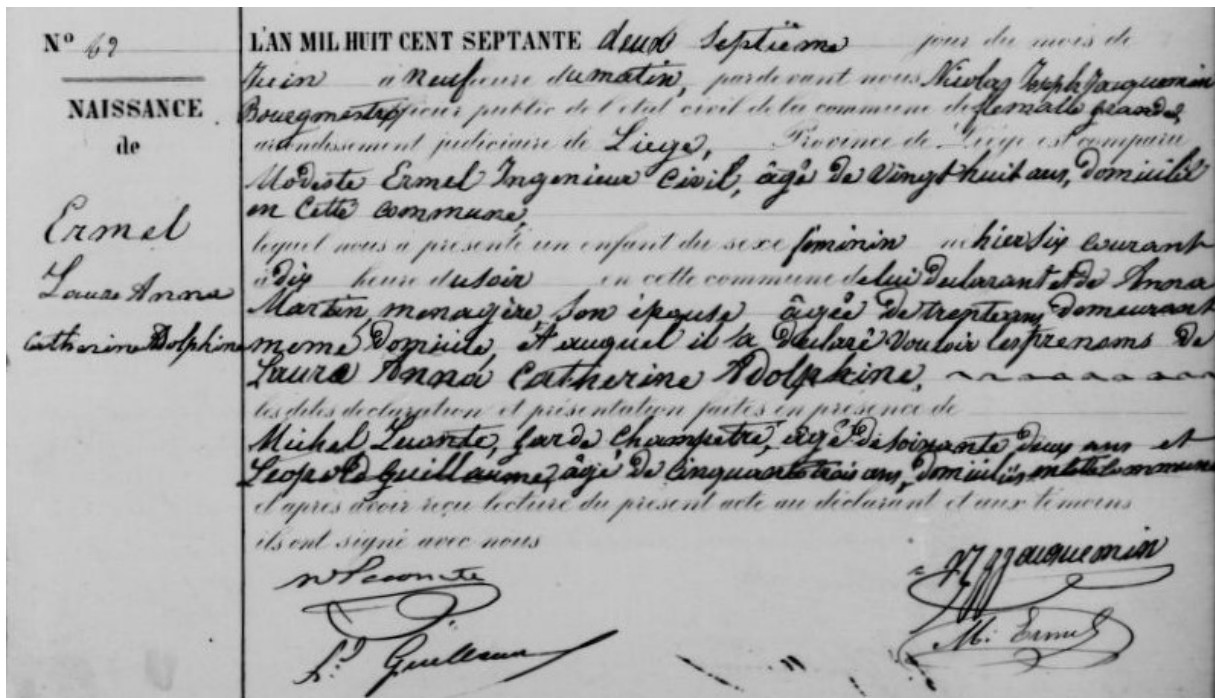 N° 62
NAISSANCE
de
Ermel
Laure Anna
Catherine Adolphine
L'AN MIL HUIT CENT SEPTANTE deux Septième jour du mois de
Juin à Neuf heure du matin, pardevant nous Nicolas Joseph Jacquemin
Bourgmestre officier public de l'état civil de la commune de flemalle grande,
arrondissement judiciaire de Liege, Province de Liége est comparu
Modeste Ermel Ingenieur Civil, âgé de Vingt huit ans, domicilié
en Cette commune,
lequel nous a présenté un enfant du sexe féminin né hier six courant
à dix heure du soir en cette commune de lui Declarant et de Anna
Martin, menagère, Son épouse âgée de trente ans, Domeurant
meme Domicile, et auquel il a declaré Vouloir les prenoms de
Laure Anna Catherine Adolphine,
les dites declaration et présentation faites en présence de
Michel Lecomte, garde Champetre, âgé de soixante deux ans et
Leopold Guillaume, âgé de Cinquante trois ans, Domiciliés en cette Commune
et après avoir reçu lecture du présent acte au déclarant et aux témoins
ils ont signé avec nous
M Lecomte
NJJacquemin
Ld Guillaume
M. Ermel